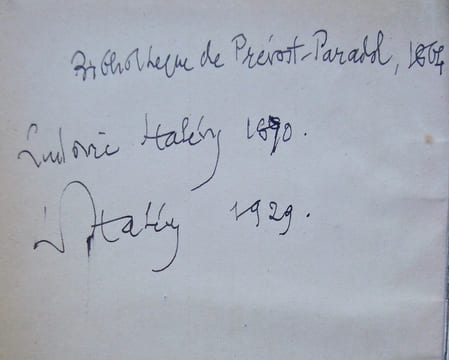 Bibliothèque de Prévost-Paradol, 1864
Ludovic Halévy 1890.
D Halévy 1929.